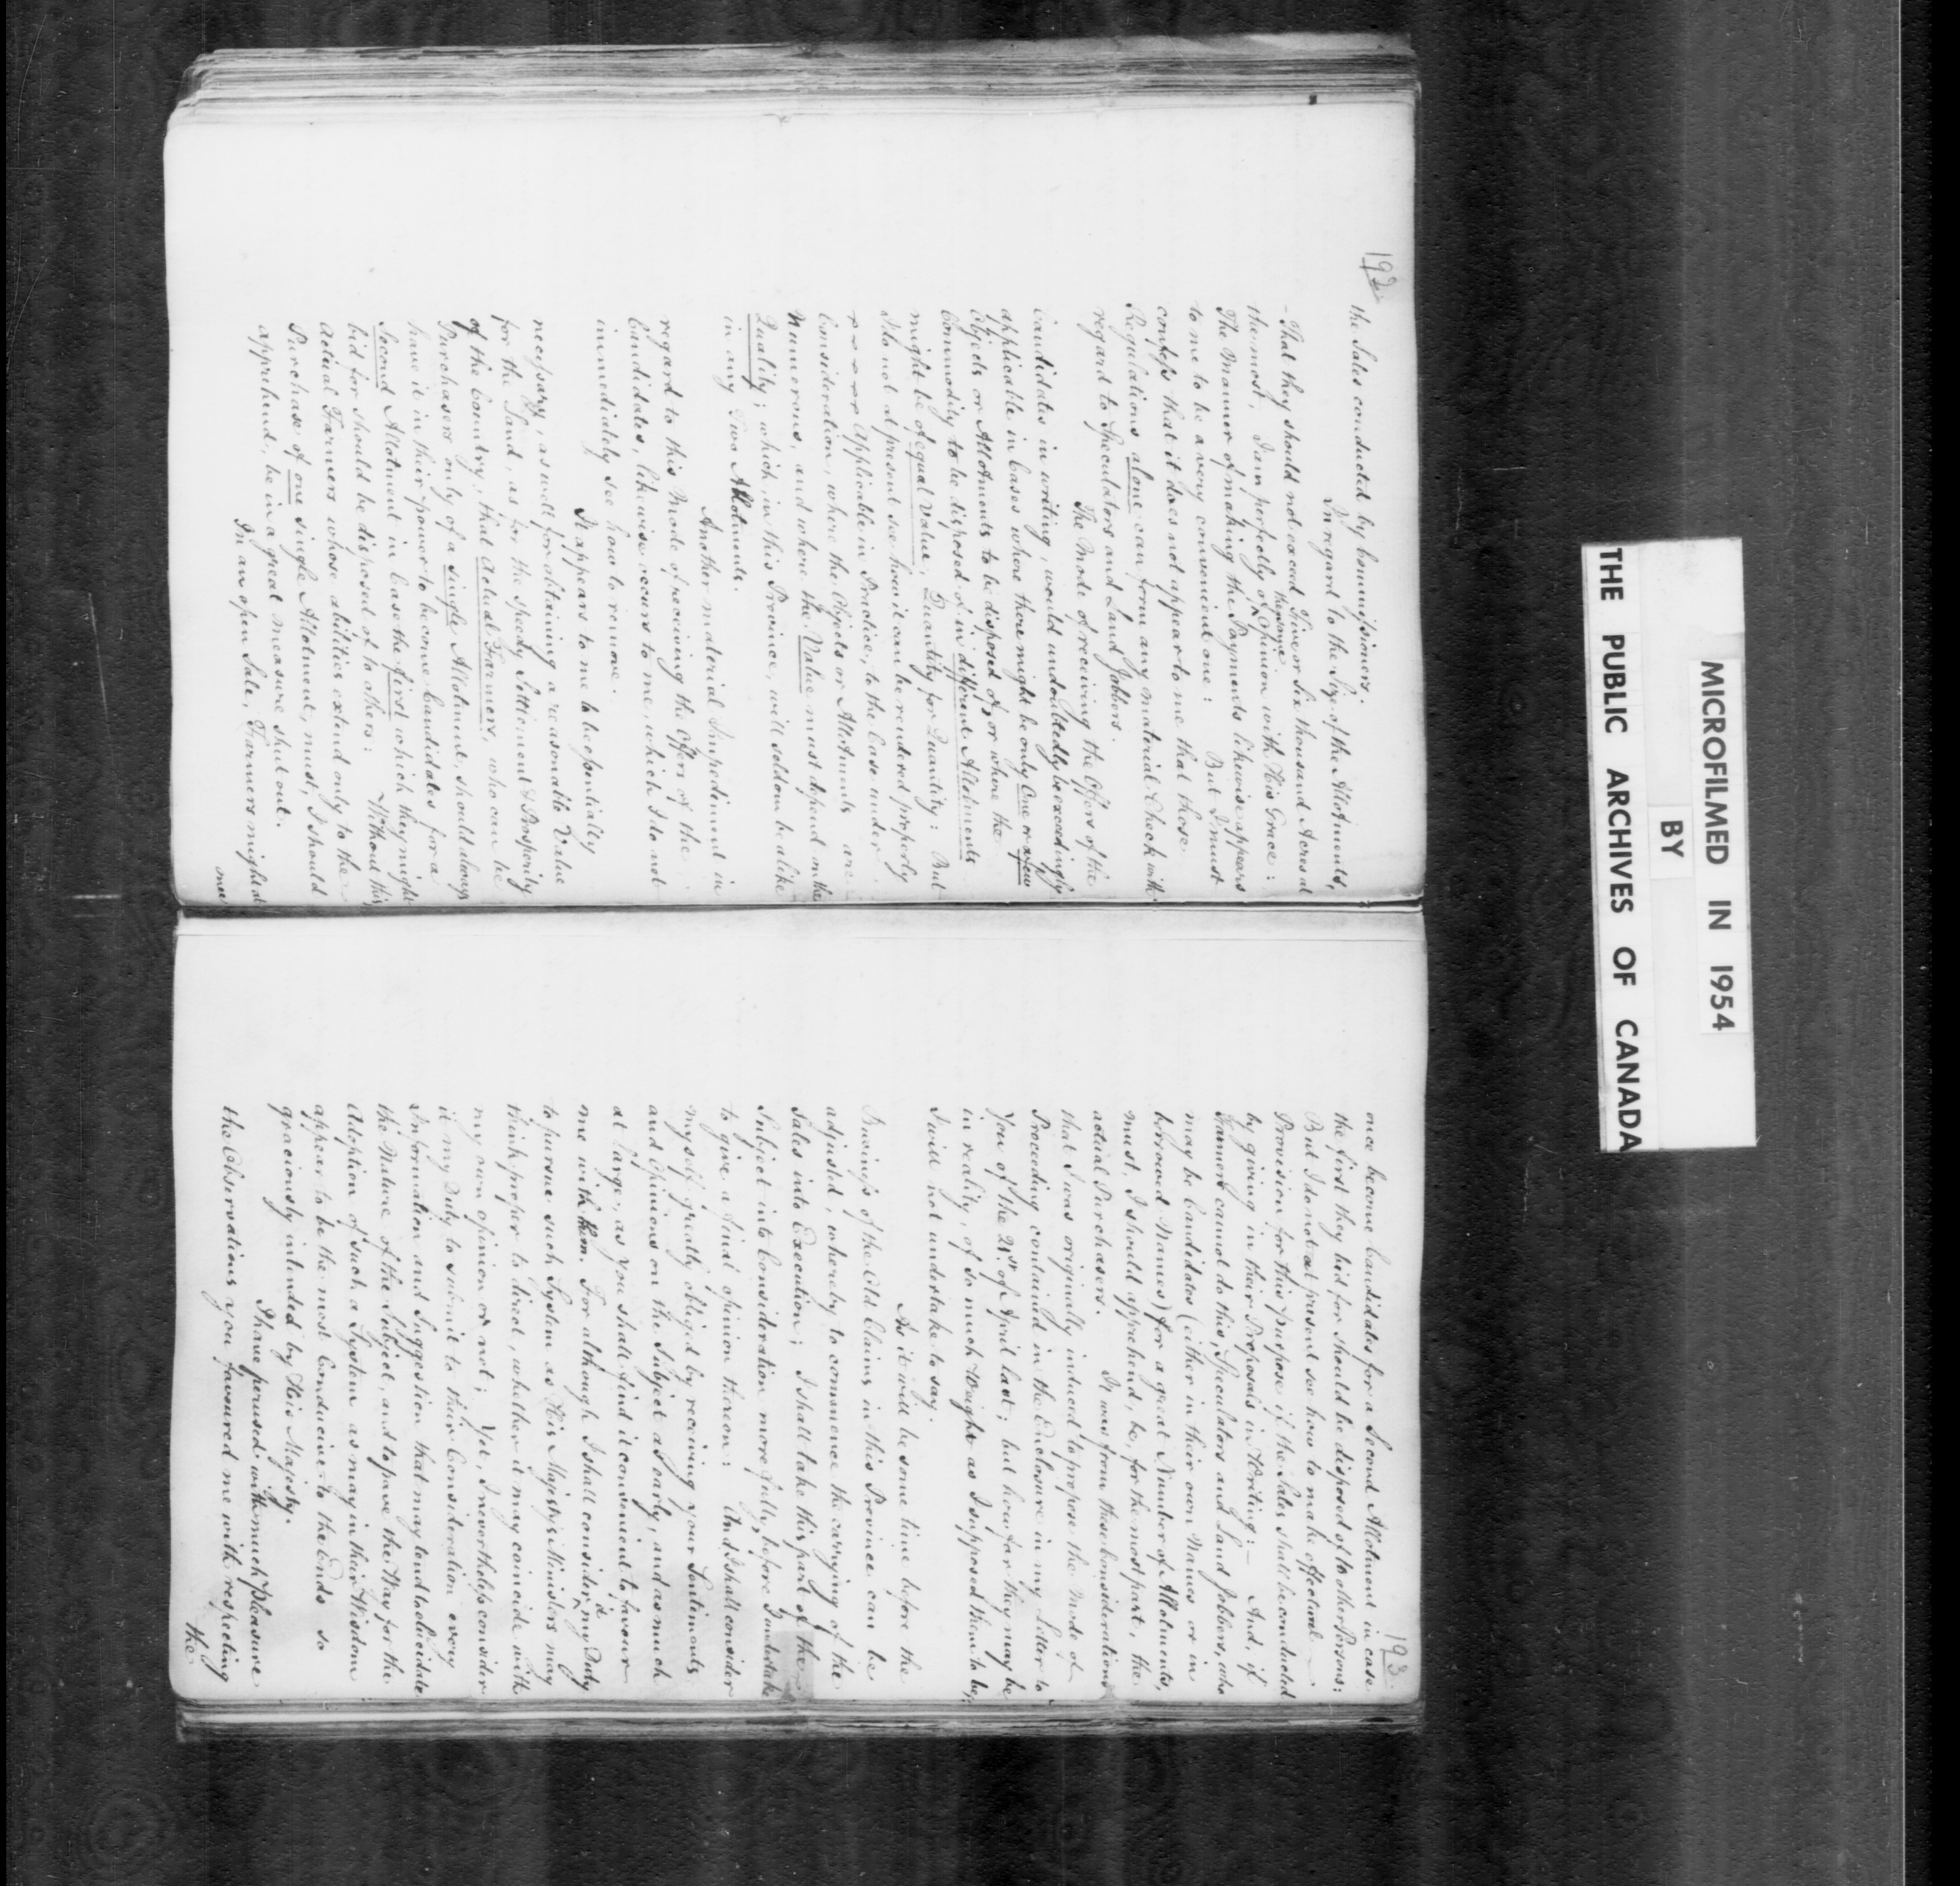 192
the Sales conducted by Commissioners.
In regard to the Size of the Allotments,
- That they should not exceed Five or Six thousand Acres at
the most, I am perfectly of the same Opinion with His Grace:
The Manner of making the Payments likewise appears
to me to be a very convenient one: But I must
confess that it does not appear to me that those
Regulations alone can form any material Check with
regard to Speculators and Land Jobbers.
The Mode of receiving the Offers of the
Candidates in writing, would undoubtedly be exceedingly
applicable in Cases where there might be only One or a few
Objects or Allotments to be disposed of, or where the
Commodity to be disposed of in different Allotments
might be of equal Value, Quantity for Quantity: But
I do not at present see how it can be rendered properly
applicable in Practice, to the Case under
Consideration, where the Objects or Allotments are
Numerous, and where the Value must depend on the
Quality; which, in this Province, will seldom be alike
in any Two Allotments.
Another material Impediment in
regard to this Mode of receiving the Offers of the
Candidates, likewise occurs to me, which I do not
immediately see how to remove.
It appears to me to be essentially
necessary, as well for obtaining a reasonable Value
for the Land, as for the speedy Settlement & Prosperity
of the Country, that Actual Farmers, who can be
Purchasers only of a single Allotment, should always
have it in their power to become Candidates for a
Second Allotment in Case the first which they might
bid for should be disposed of to others: Without this
Actual Farmers whose abilities extend only to the
Purchase of one single Allotment, must, I should
apprehend, be in a great measure shut out.
In an open Sale, Farmers might at
once
193
once become Candidates for a Second Allotment in case
the first they bid for should be disposed of to other Persons:
But I do not at present see how to make effectual
Provision for this purpose if the Sales shall be conducted
by giving in their Proposals in Writing:— And, if
Farmers cannot do this, Speculators and Land Jobbers, who
may be Candidates (either in their own Names or in
borrowed Names) for a great Number of Allotments,
must, I should apprehend, be, for the most part, the
actual Purchasers. It was from these Considerations
that I was originally induced to propose the Mode of
Proceeding contained in the Enclosure in my Letter to
You of the 21st of April last; but how far they may be
in reality, of so much Weight as I supposed them to be,
I will not undertake to say.
As it will be some time before the
Business of the Old Claims in this Province can be
adjusted, whereby to commence the carrying of the
Sales into Execution; I shall take this part of the
Subject into Consideration more fully, before I undertake
to give a final opinion thereon: And I shall consider
myself greatly obliged by receiving your Sentiments
and Opinions on the Subject as early, and as much
at large, as you shall find it convenient to favour
me with them. For although I shall consider it a Duty
to pursue such System as His Majesty's Ministers may
think proper to direct, whether it may coincide with
my own opinion or not; Yet, I nevertheless consider
it my Duty to submit to their Consideration every
Information and Suggestion that may tend to elucidate
the Nature of the Subject, and to pave the Way for the
Adoption of such a System as may in their Wisdom
appear to be the most Conducive to the Ends so
graciously intended by His Majesty.
I have perused with much Pleasure
the Observations you favoured me with respecting
the
MICROFILMED IN 1954
BY
THE PUBLIC ARCHIVES OF CANADA